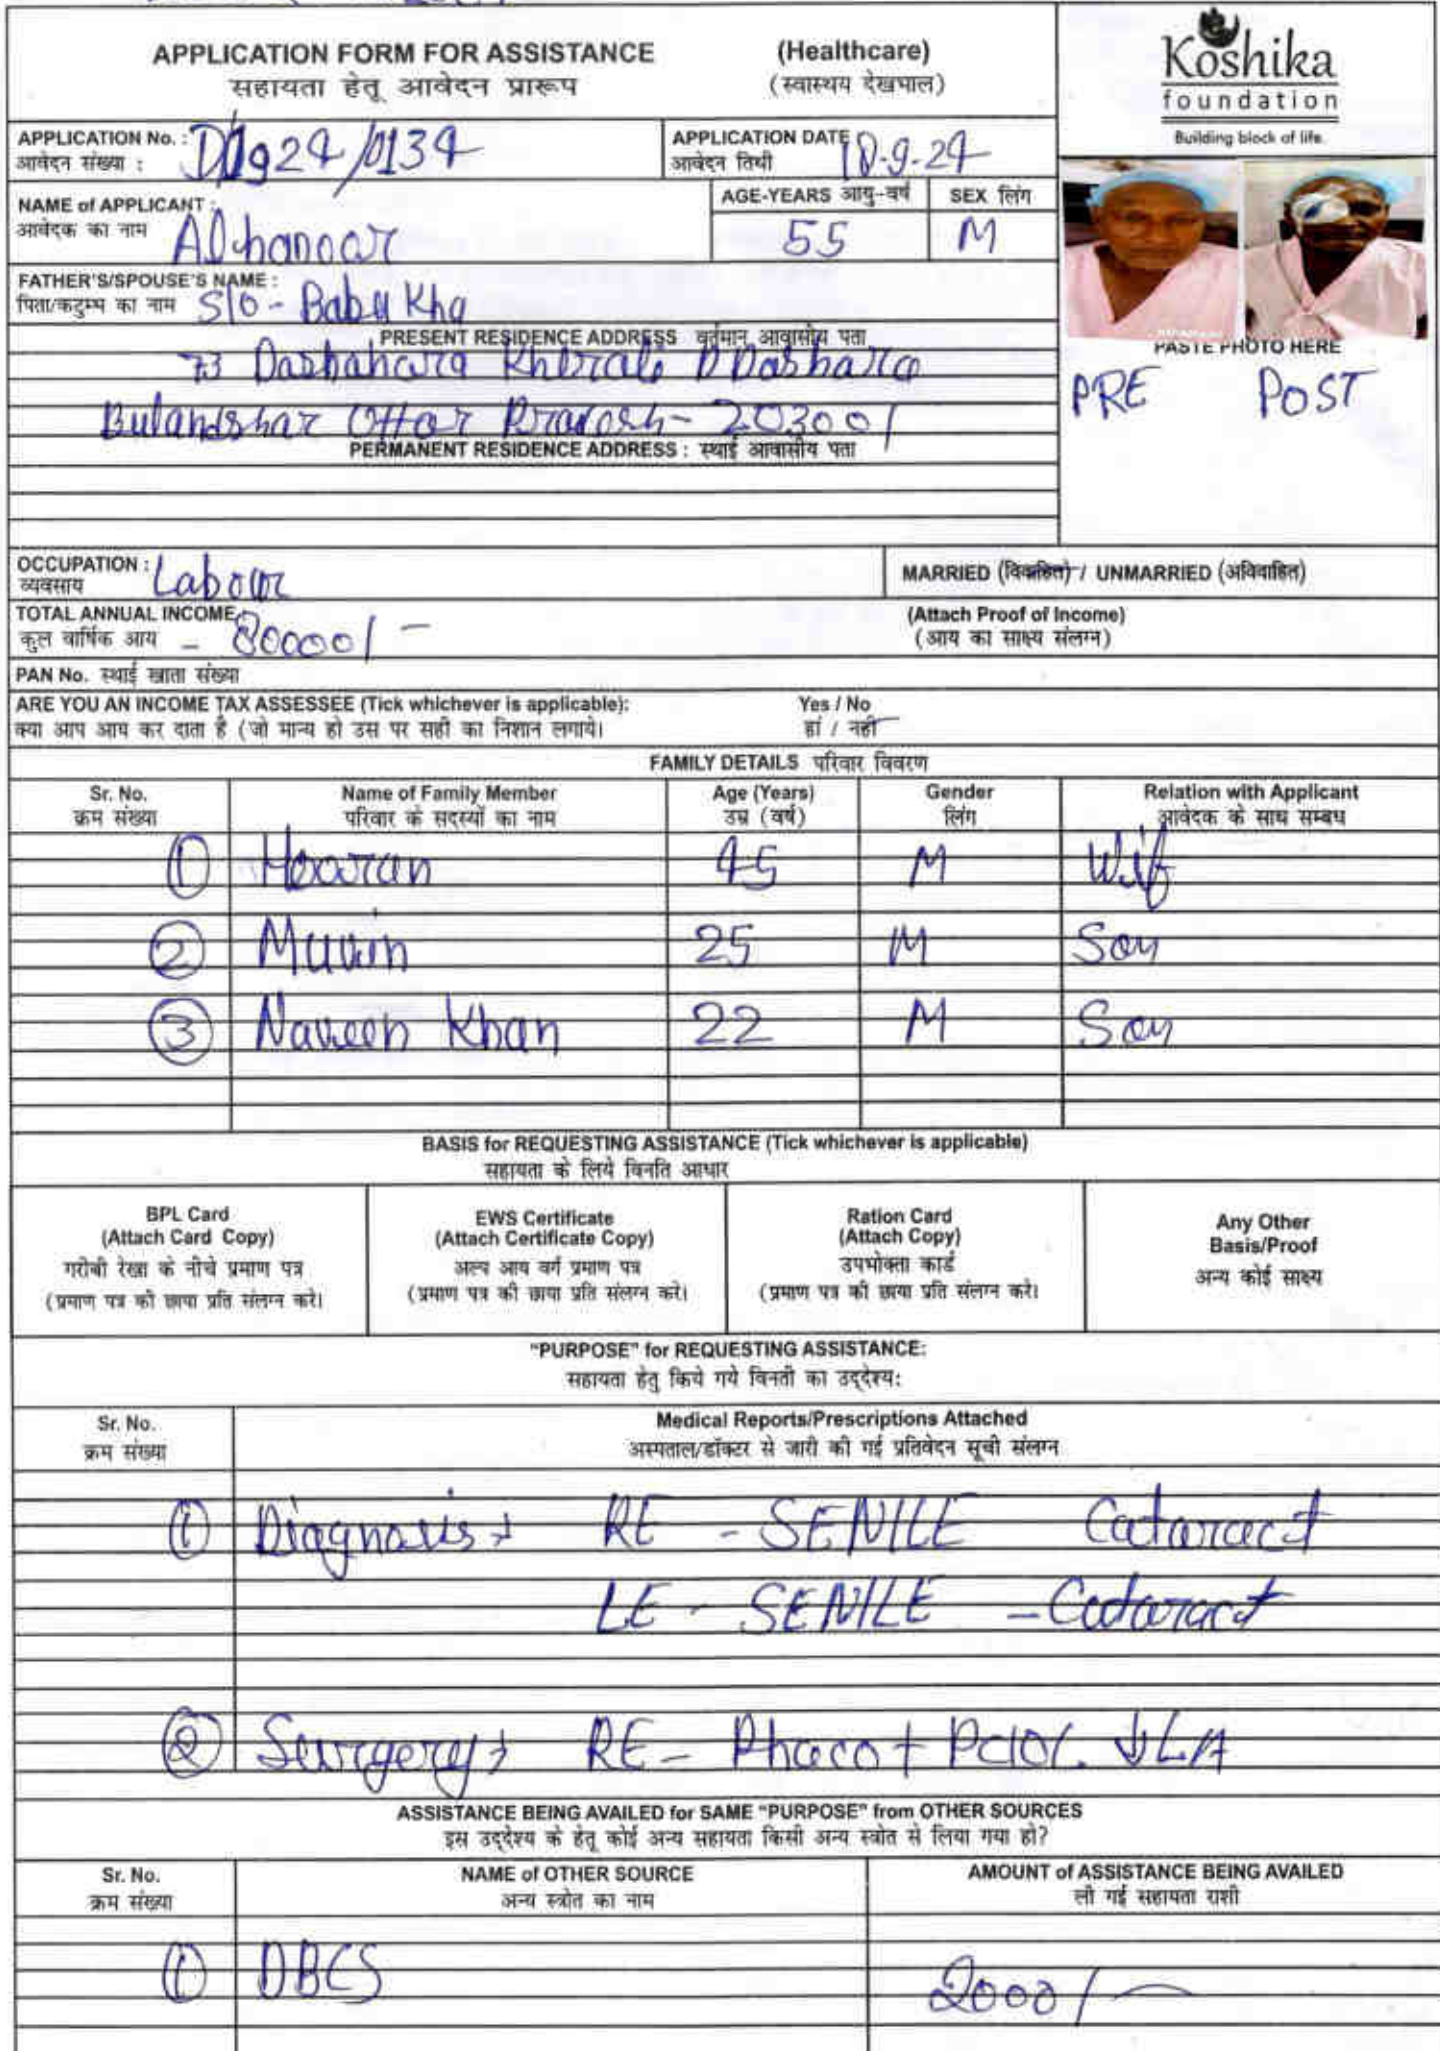 APPLICATION FORM FOR ASSISTANCE (Healthcare)
सहायता हेतू आवेदन प्रारूप (स्वास्थय देखभाल)
Koshika
foundation
Building block of life.
APPLICATION No. : APPLICATION DATE 18-9-24
आवेदन संख्या : /0134 आवेदन तिथी
NAME of APPLICANT : AGE-YEARS आयु-वर्ष SEX लिंग
आवेदक का नाम 55 M
FATHER'S/SPOUSE'S NAME :
पिता/कटुम्ब का नाम S/O - Babu Kha
PRESENT RESIDENCE ADDRESS वर्तमान आवासीय पता
73
Bulandshar Uttar Pradesh - 203001
PERMANENT RESIDENCE ADDRESS : स्थाई आवासीय पता
PASTE PHOTO HERE
PRE POST
OCCUPATION : Labour
व्यवसाय
MARRIED (विवाहित) / UNMARRIED (अविवाहित)
TOTAL ANNUAL INCOME (Attach Proof of Income)
कुल वार्षिक आय - 80000/- (आय का साक्ष्य संलग्न)
PAN No. स्थाई खाता संख्या
ARE YOU AN INCOME TAX ASSESSEE (Tick whichever is applicable): Yes / No
क्या आप आय कर दाता है (जो मान्य हो उस पर सही का निशान लगाये। हां / नहीं
FAMILY DETAILS परिवार विवरण
Sr. No. Name of Family Member Age (Years) Gender Relation with Applicant
क्रम संख्या परिवार के सदस्यों का नाम उम्र (वर्ष) लिंग आवेदक के साथ सम्बध
① 45 M Wif
② 25 M Son
③ Naveen Khan 22 M Son
BASIS for REQUESTING ASSISTANCE (Tick whichever is applicable)
सहायता के लिये विनति आधार
BPL Card
(Attach Card Copy)
गरीबी रेखा के नीचे प्रमाण पत्र
(प्रमाण पत्र की छाया प्रति संलग्न करे।
EWS Certificate
(Attach Certificate Copy)
अल्प आय वर्ग प्रमाण पत्र
(प्रमाण पत्र की छाया प्रति संलग्न करे।
Ration Card
(Attach Copy)
उपभोक्ता कार्ड
(प्रमाण पत्र की छाया प्रति संलग्न करे।
Any Other
Basis/Proof
अन्य कोई साक्ष्य
"PURPOSE" for REQUESTING ASSISTANCE:
सहायता हेतु किये गये विनती का उद्देश्य:
Sr. No. Medical Reports/Prescriptions Attached
क्रम संख्या अस्पताल/डॉक्टर से जारी की गई प्रतिवेदन सूची संलग्न
① Diagnosis RE - SENILE Cataract
LE - SENILE - Cataract
② Surgery RE - Phaco + PCIOL
ASSISTANCE BEING AVAILED for SAME "PURPOSE" from OTHER SOURCES
इस उद्देश्य के हेतू कोई अन्य सहायता किसी अन्य स्त्रोत से लिया गया हो?
Sr. No. NAME of OTHER SOURCE AMOUNT of ASSISTANCE BEING AVAILED
क्रम संख्या अन्य स्त्रोत का नाम ली गई सहायता राशी
① DBCS 2000/-